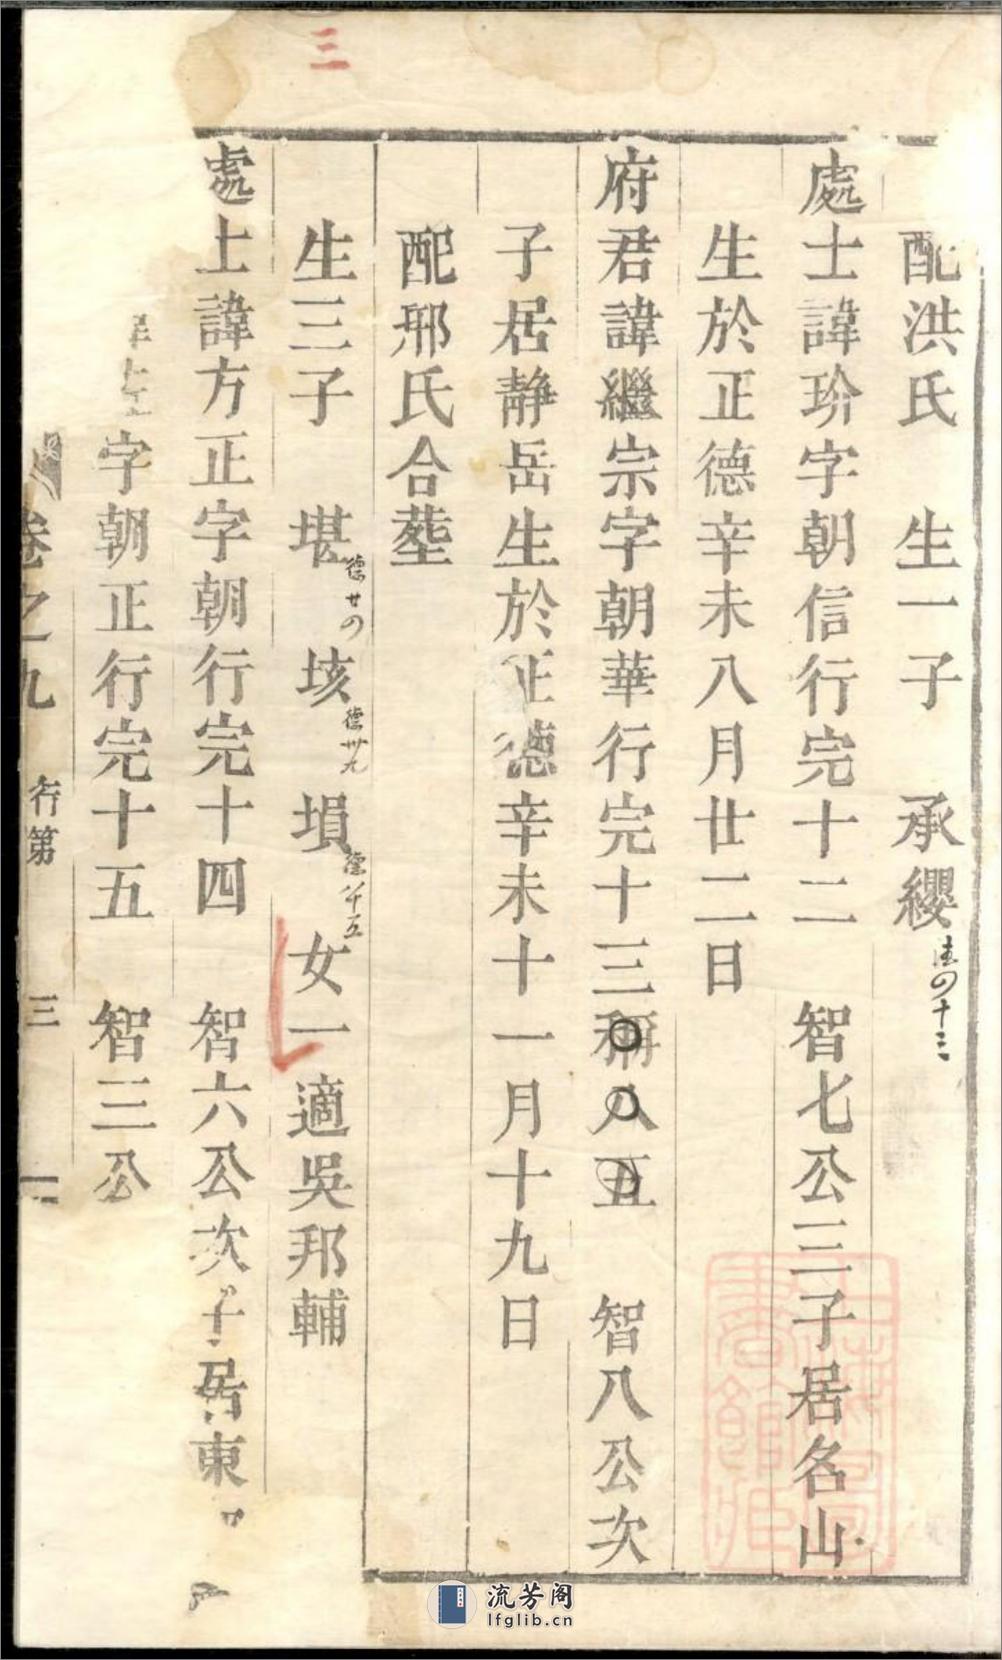 三
配洪氏 生一子 承纓 德四十三
處士諱玠字朝信行完十二 智七公三子居名山
生於正德辛未八月廿二日
府君諱繼宗字朝華行完十三稱八五 智八公次
子居靜岳生於正德辛未十一月十九日
配邢氏合塟
生三子 堪 德廿四 垓 德卅九 塤 女一適吳邦輔
處士諱方正字朝行完十四 智六公次子居東
字朝正行完十五 智三公
卷之九 行第 三
流芳阁
lfglib.cn